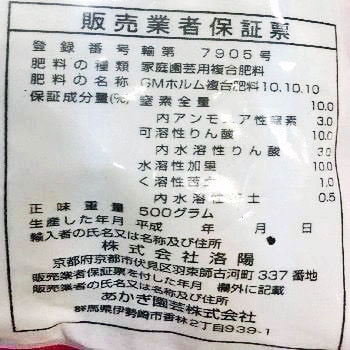 販売業者保証票
登録番号 輸第 7905号
肥料の種類 家庭園芸用複合肥料
肥料の名称 GMホルム複合肥料10.10.10
保証成分量(%) 窒素全量 10.0
内アンモニア性窒素 3.0
可溶性りん酸 10.0
内水溶性りん酸 3.0
水溶性加里 10.0
く溶性苦土 1.0
内水溶性苦土 0.5
正味重量 500グラム
生産した年月 平成 年 月
輸入者の氏名又は名称及び住所
株式会社洛陽
京都府京都市伏見区羽束師古河町337番地
販売業者保証票を付した年月 欄外に記載
販売業者の氏名又は名称及び住所
あかぎ園芸株式会社
群馬県伊勢崎市香林2丁目939-1